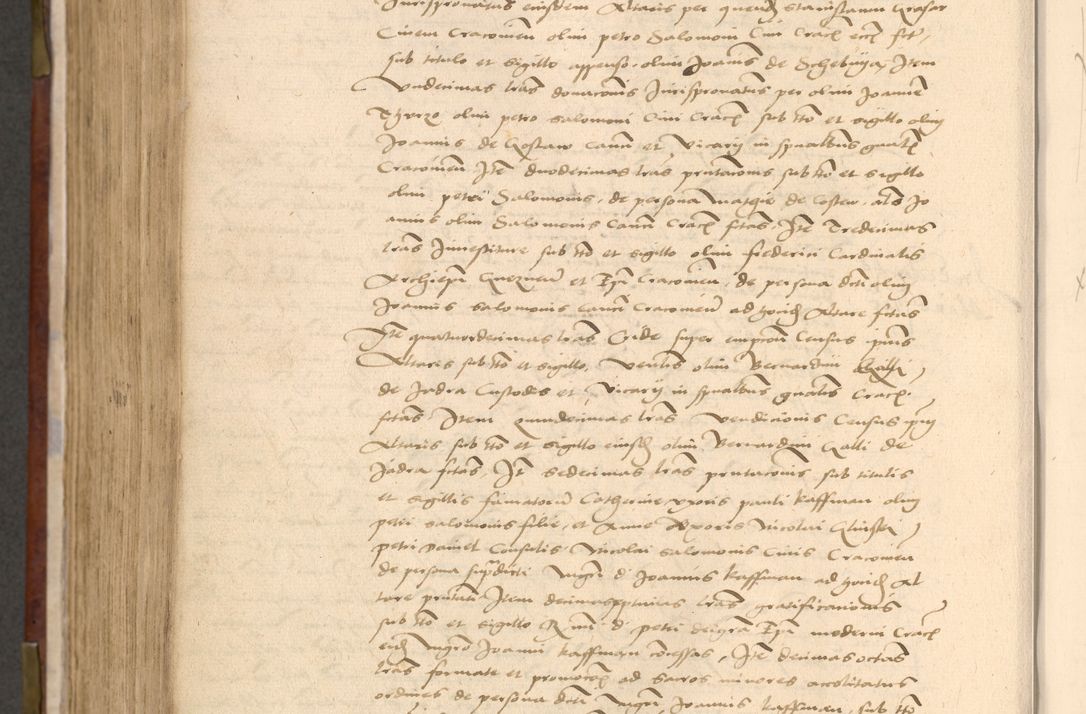 Jurispronatus eiusdem Altaris per quendam Stanislaum Grasar
Civem Cracovien olim petro Salomoni Civi Crac̃ etc̃ fct̃
sub titulo et sigillo appenso olim Joannis de Schebnya, Item
Undecimas lr̃as donac̃onis Jurispronatus per olim Joannem
Thurzo olim petro Salomoni Civi Crac̃ sub tt̃o et sigillo olim
Joannis de Costaw Cañ et Vicarij in sp̃ualibus gñalis
Cracovien Itẽ duodecimas lr̃as pñtac̃onis sub tt̃o et sigillo
olim petri Salomonis, de persona Mathie de Costen, al̃s Jo
annis olim Salomonis Cañ Crac̃ fctas, Itẽ Tredecimas
lr̃as Investiture sub tt̃o et sigillo olim frederici Cardinalis
Archiep̃i Gneznen et Ep̃i Cracovien, de persona dc̃ti olim
Joannis Salomonis Cañ Cracovien ad hm̃oi Altare fctas
Itẽ quatuordecimas lr̃as super emptioñ Census ipsius
Altaris sub tt̃o et sigillo, Veñlis olim Bernardini Galli
de Jadra Custodis et Vicarij in sp̃ualibus gñalis Crac̃
fctas, Item quindecimas lr̃as Vendicionis Census ipsius
Altaris sub tt̃o et sigillo eiusdẽ olim Bernardini Galli de
Jadra fctas, Itẽ sedecimas lr̃as pñtac̃onis sub titulis
et sigillis famatorũ Catherine uxoris pauli Kaffman olim
petri Salomonis filie, et Anne Uxoris Nicolai
petri Consulis Nicolai Salomonis Civis Cracovien
de persona sup̃dicti Mgr̃i d Joannis Kaffman ad hm̃oi Al
tare pñtati, Item decimasseptimas lr̃as gratificationis
sub tt̃o et sigillo R̃mi d petri dei gr̃a Ep̃i moderni Crac̃
eidẽ Mgr̃o Joanni Kaffman concessas, Itẽ decimasoctas
lr̃as formate et promoc̃o ad sacros minores accolitatus
ordines de persona dc̃ti Mgr̃i Joannis Kaffman, sub tt̃o